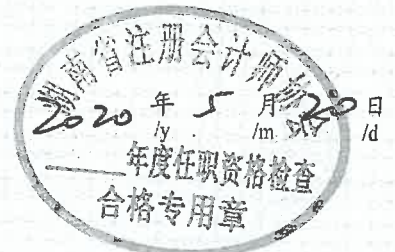 湖南省注册会计师协会
2020 年 5 月 20 日
/y /m /d
年度任职资格检查
合格专用章